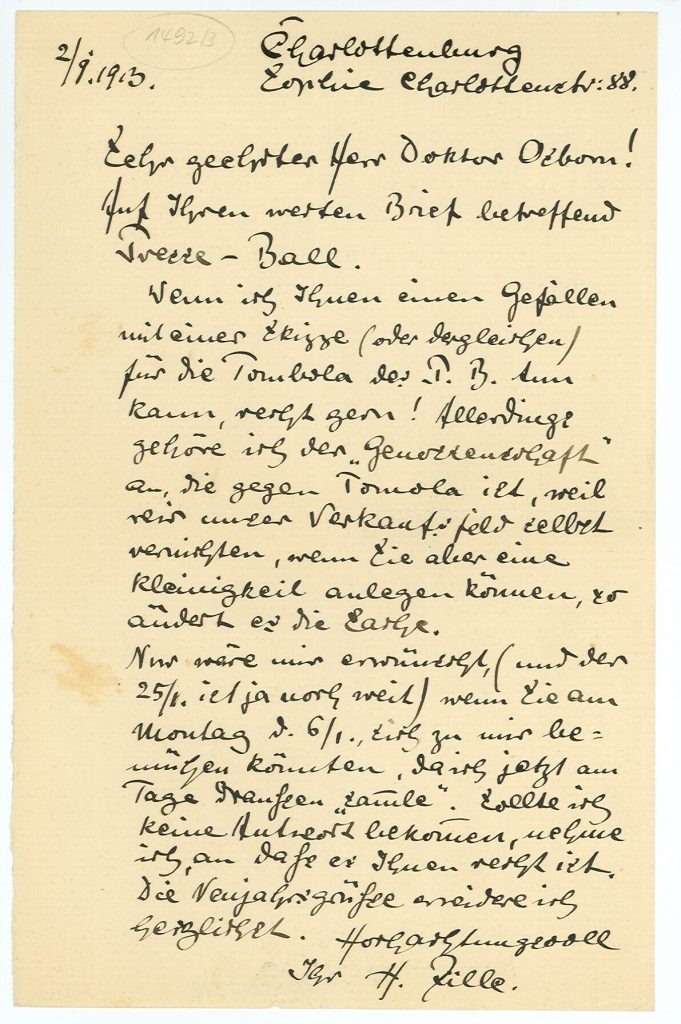 1492/3
2/I. 1913.
Charlottenburg
Sophie Charlottenstr: 88.
Sehr geehrter Herr Doktor Osborn!
Auf Ihren werten Brief betreffend
Presse - Ball.
Wenn ich Ihnen einen Gefallen
mit einer Skizze (oder dergleichen)
für die Tombola des P. B. tun
kann, recht gern! Allerdings
gehöre ich der „Genossenschaft"
an, die gegen Tomola ist, weil
wir unser Verkaufsfeld selbst
vernichten, wenn Sie aber eine
Kleinigkeit anlegen können, so
ändert es die Sache.
Nur wäre mir erwünscht, (und der
25/1. ist ja noch weit) wenn Sie am
Montag d. 6/1., sich zu mir be=
mühen könnten, da ich jetzt am
Tage draussen „sam̅le". Sollte ich
keine Antwort beko​m̅en, nehme
ich, an dass es Ihnen recht ist.
Die Neujahrsgrüsse erwidere ich
herzlichst. Hochachtungsvoll
Ihr H. Zille.